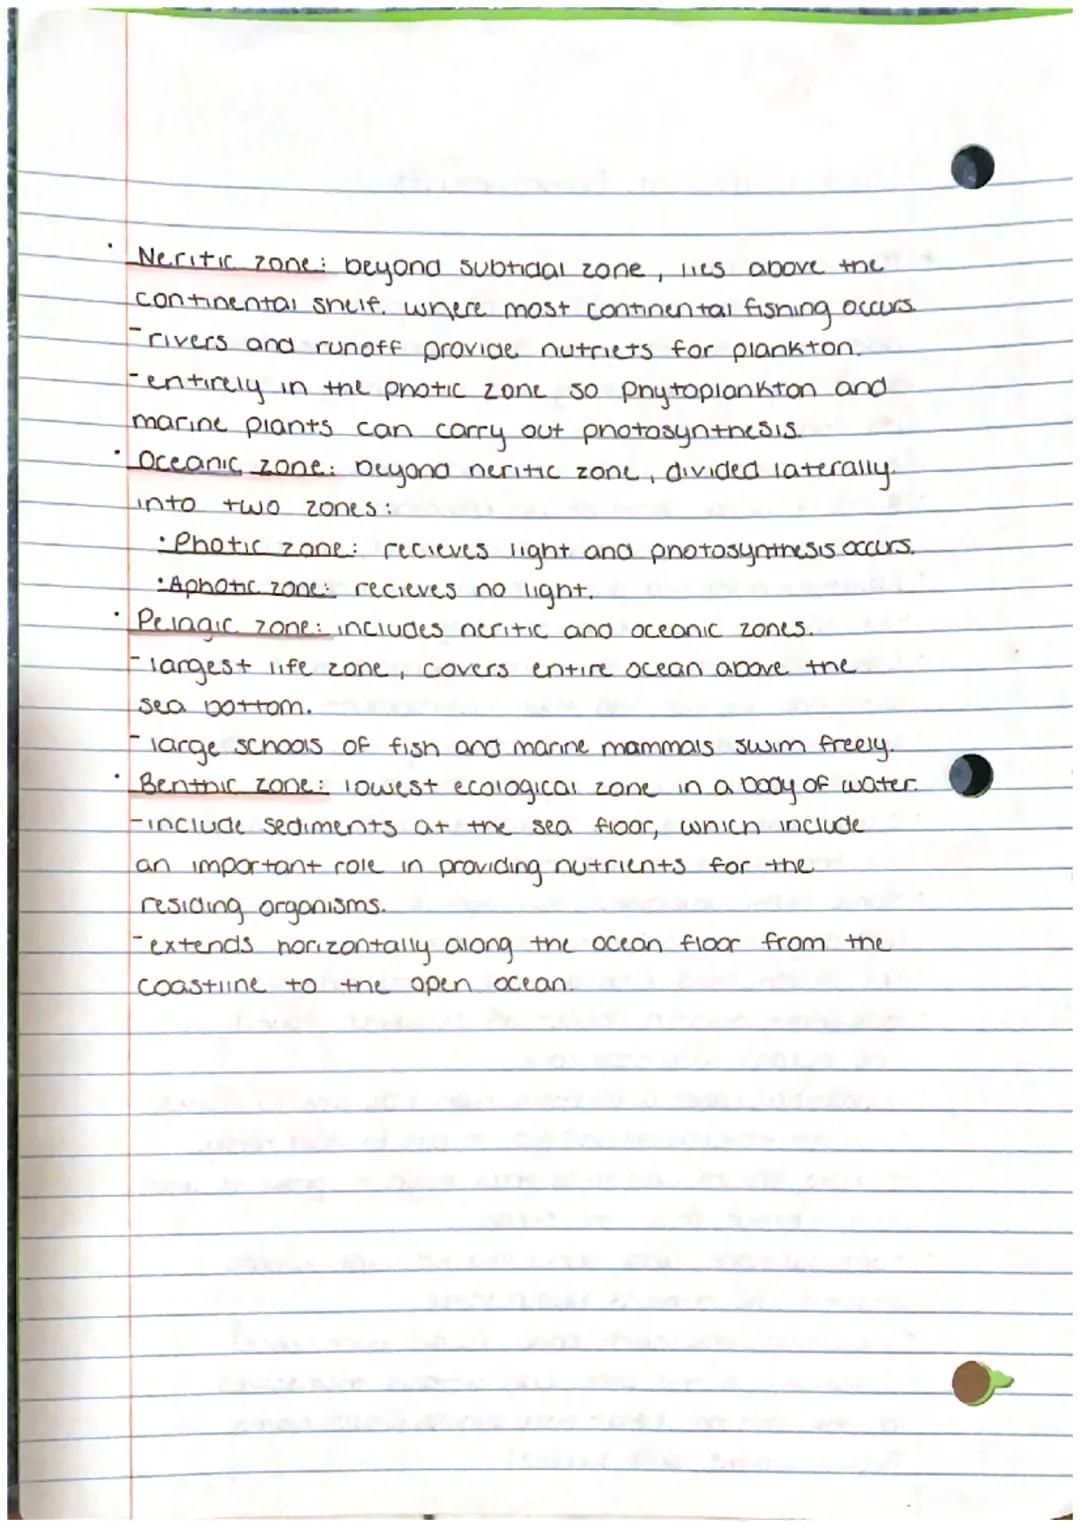 · Neritic zone: beyond subtidal zone, lies above the
continental shelf. where most continental fishing occurs.
- rivers and runoff provide nutriets for plankton.
- entirely in the photic zone so phytoplankton and
marine plants can carry out photosynthesis.
· Oceanic zone: beyond neritic zone, divided laterally
into two zones:
· Photic zone: recieves light and photosynthesis occurs.
· Aphotic zone: recieves no light.
· Pelagic zone: includes neritic and oceanic zones.
- largest life zone, covers entire ocean above the
sea bottom.
- large schools of fish and marine mammals swim freely.
· Benthic zone: lowest ecological zone in a body of water.
- include sediments at the sea floor, which include
an important role in providing nutrients for the
residing organisms.
- extends horizontally along the ocean floor from the
coastline to the open ocean.